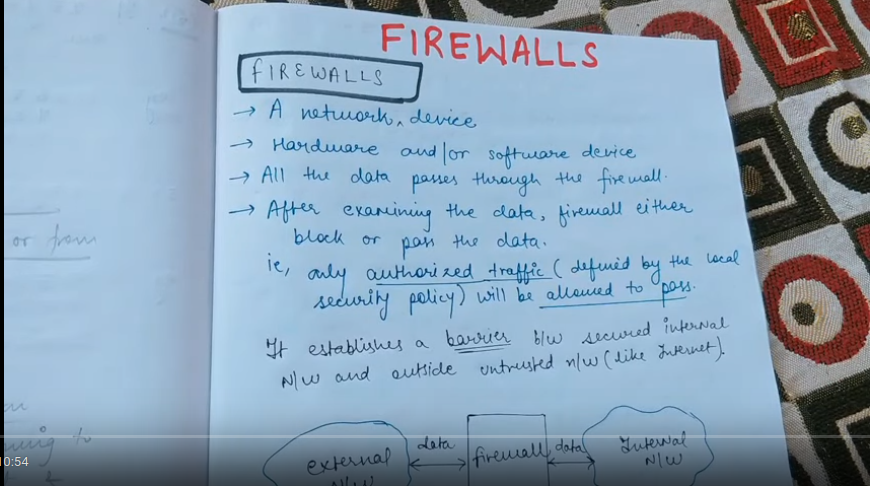 FIREWALLS
FIREWALLS
→ A network, device
→ Hardware and/or software device
→ All the data passes through the firewall.
→ After examining the data, firewall either
block or pass the data.
ie, only authorized traffic (defined by the local
security policy) will be allowed to pass.
It establishes a barrier b/w secured internal
N/W and outside untrusted n/w (like Internet).
data
data
external
N/W
firewall
Internal
N/W
or from
to
10:54